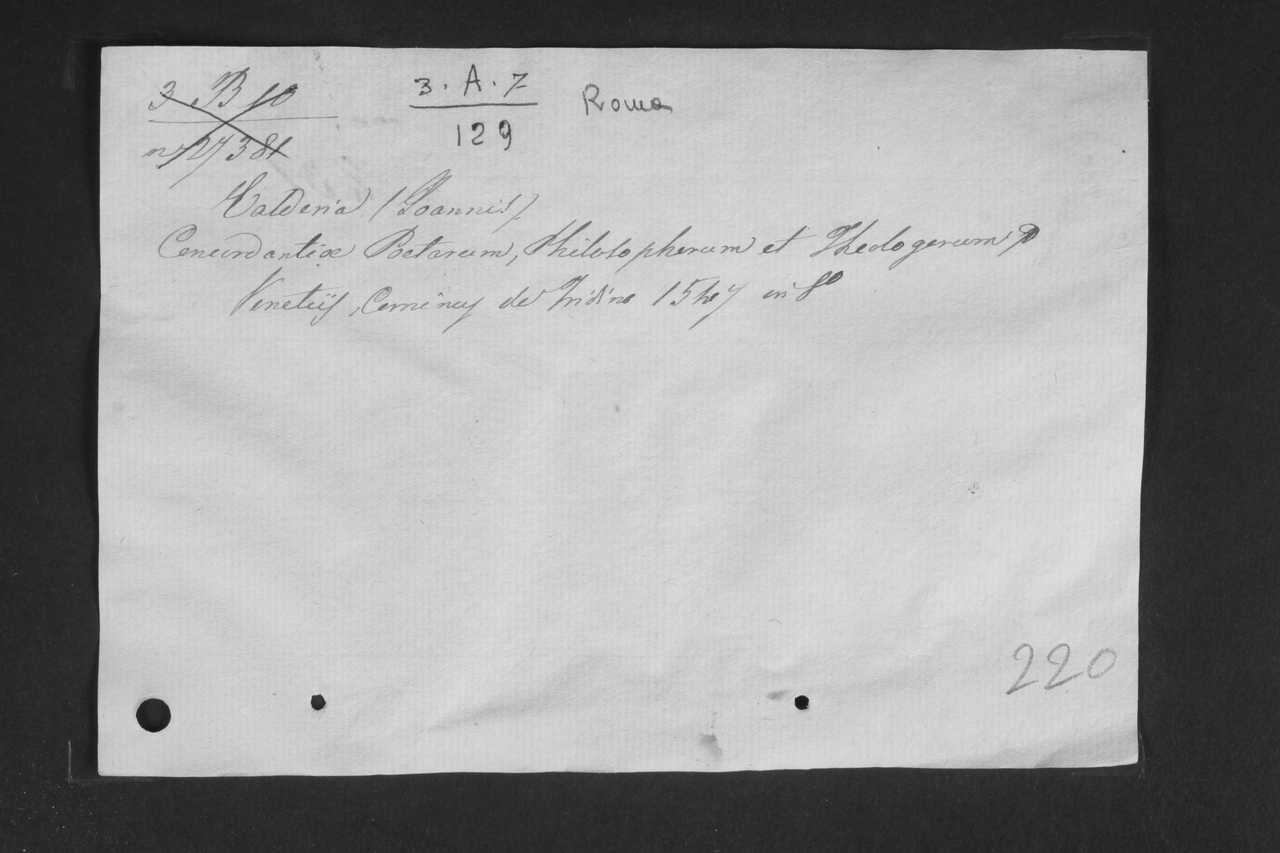 3 B 10
nº 27381
3. A. 7
129
Roma
Calderia (Joannis)
Concordantiæ Poetarum, Philosophorum et Theologorum
Venetiis, Cominus de Tridino 1547 in 8º
220